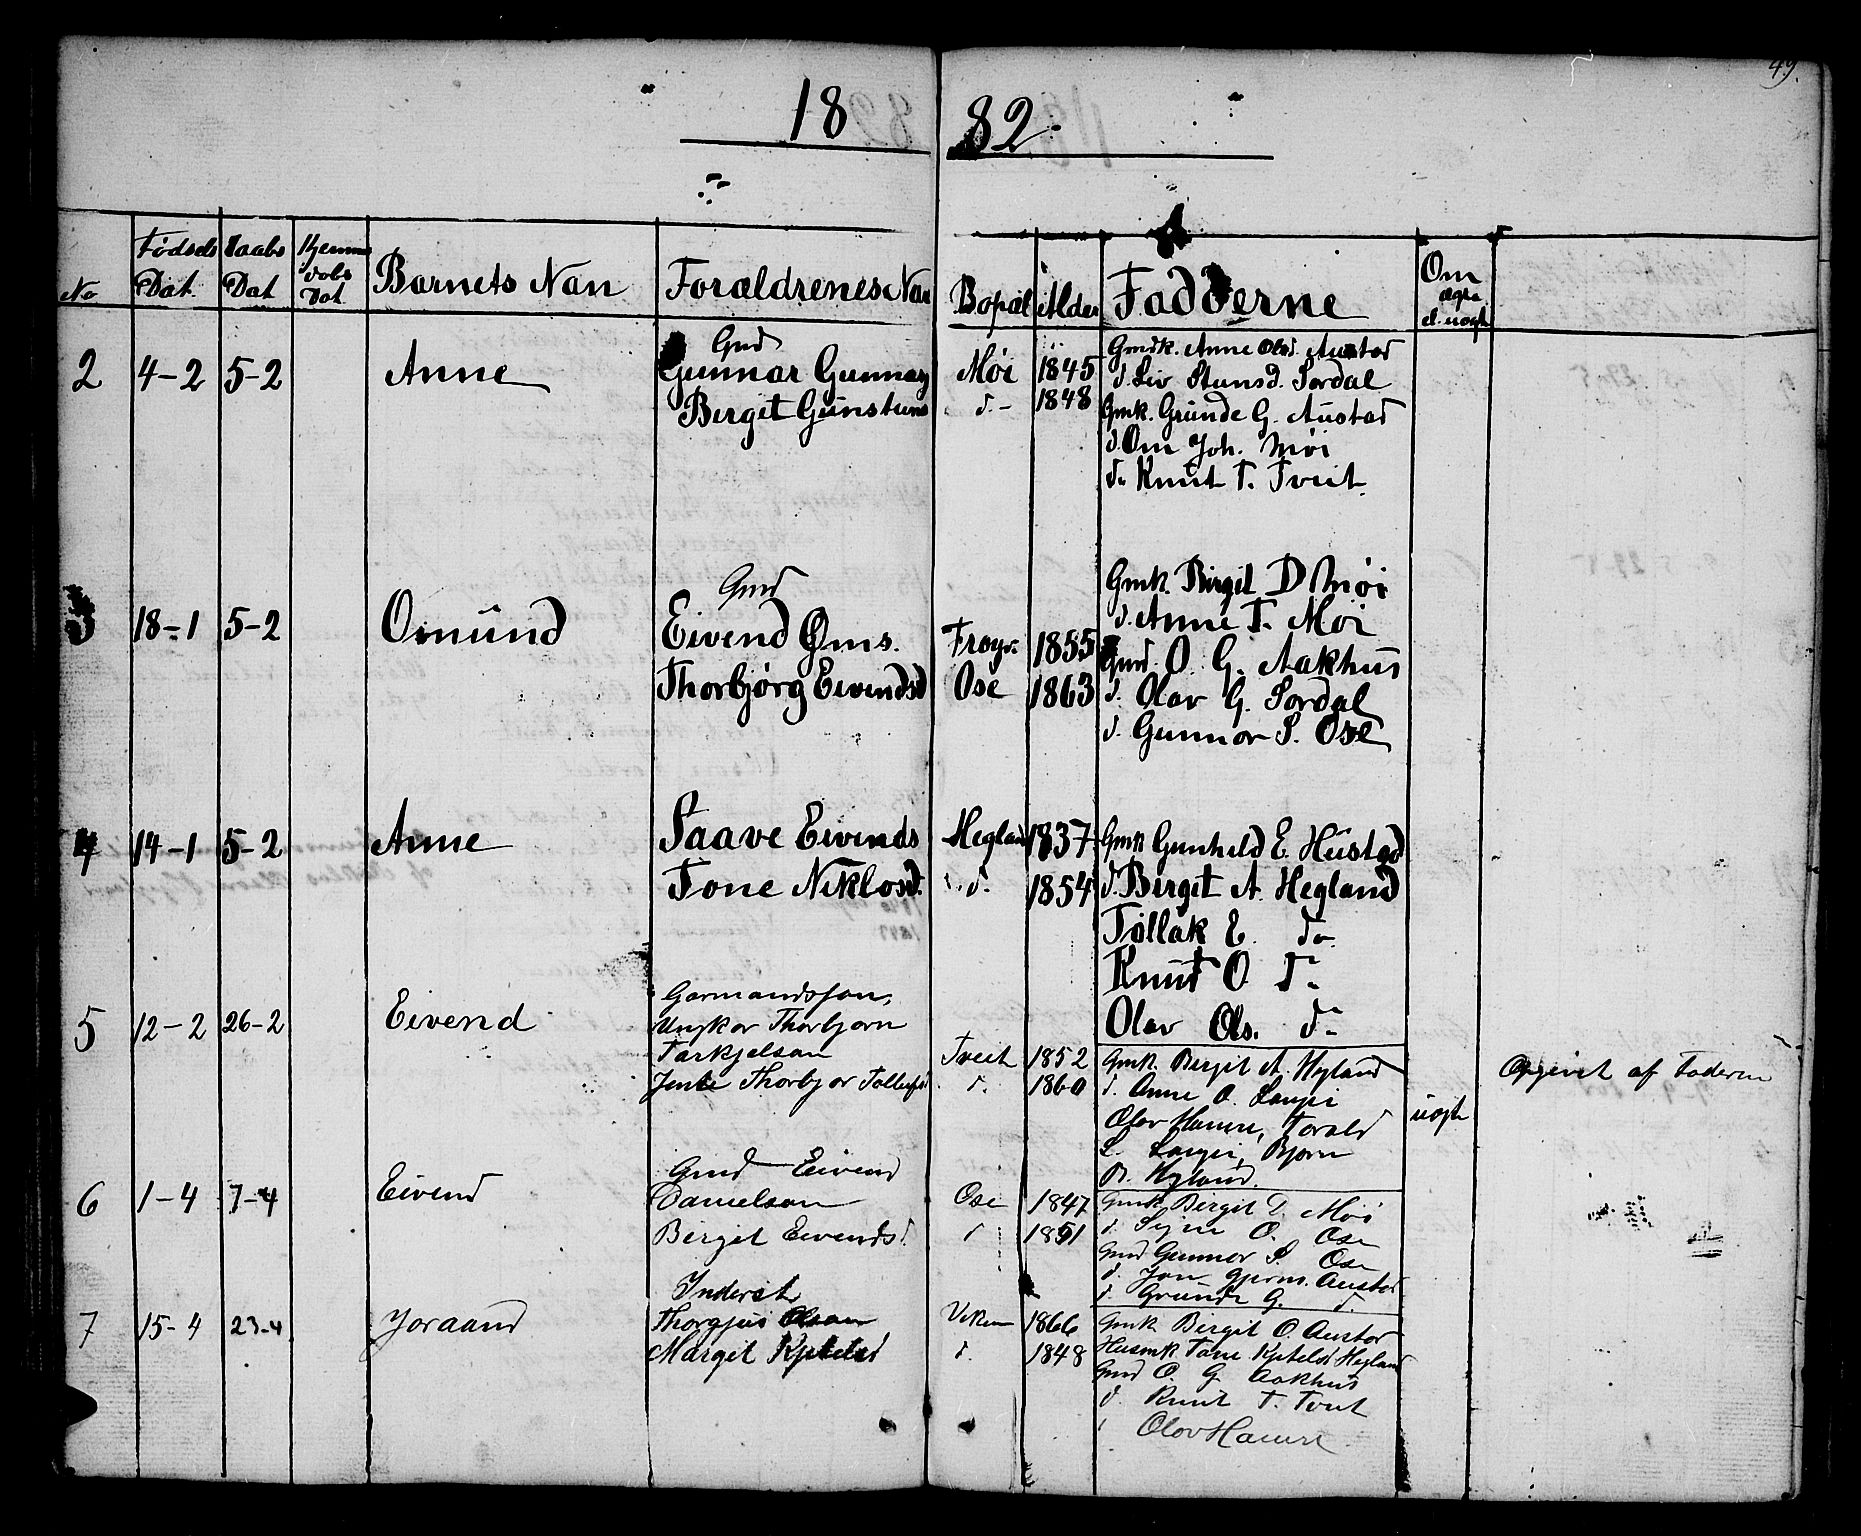 49.
18 82.
No
Fødsels Dat.
Daabs Dat
Hjemme dobs Dat.
Barnets Nan
Foraldrenes Nan
Bopal
Alder
Fadderne
Om ægte el. uægt
2 4-2 5-2 Anne
Gmd
Gunnar Gunnars
Birget Gunstuns
Møi 1845
d.- 1848
Gmdk. Anne Olsd. Austad
d. Liv Stunsd. Sordal
Gmk. Grunde G. Austad
d. Om Joh. Møi
d. Knut T. Tveit.
3 18-1 5-2 Omund
Gmd
Eivend Oms.
Thorbjørg Eivendsd
Froys. 1855
Ose 1863
Gmk. Birgit D Møi
d. Anne T. Møi
Gmd. O. G. Aakhus
d. Olav G. Sordal
d. Gunnar S. Ose
4 14-1 5-2 Anne
Saave Eivends
Tone Niklosd.
Hegland 1837
d. 1854
Gmk Gunhild E. Hustad
d. Birget A. Hegland
Tøllak E. do.
Knut O. do
Olav Ols. do
5 12-2 26-2 Eivend
Garmandsson,
Ungkar Thorbjorn
Tarkjelson
Jente Thorbjor Tollefsd
Tveit 1852
d. 1860
Gmk. Birgit A. Hegland
d. Anne O. Langei
Olav Hamre, Torald
L. Langei, Bjorn
B. Hegland.
uægte
Opgivet af Faderen
6 1-4 7-4 Eivend
Gmd Eivend
Danielson
Birget Eivendsd.
Ose 1847
d 1851
Gmk Birgit D. Møi
d. Signe O. Ose
Gmd Gunnar S. Ose
d. Jon Gjerm. Austad
d. Grunde G. d.
7 15-4 23-4 Joraand
Inderst
Thorgjus Olson
Margit Kjetelsd
Viken 1866
d. 1848
Gmk Birgit O. Austad
Husmk Tone Kjetelsd Hegland
Gmd O. G. Aakhus
d. Knut T. Tveit
Olov Hamre